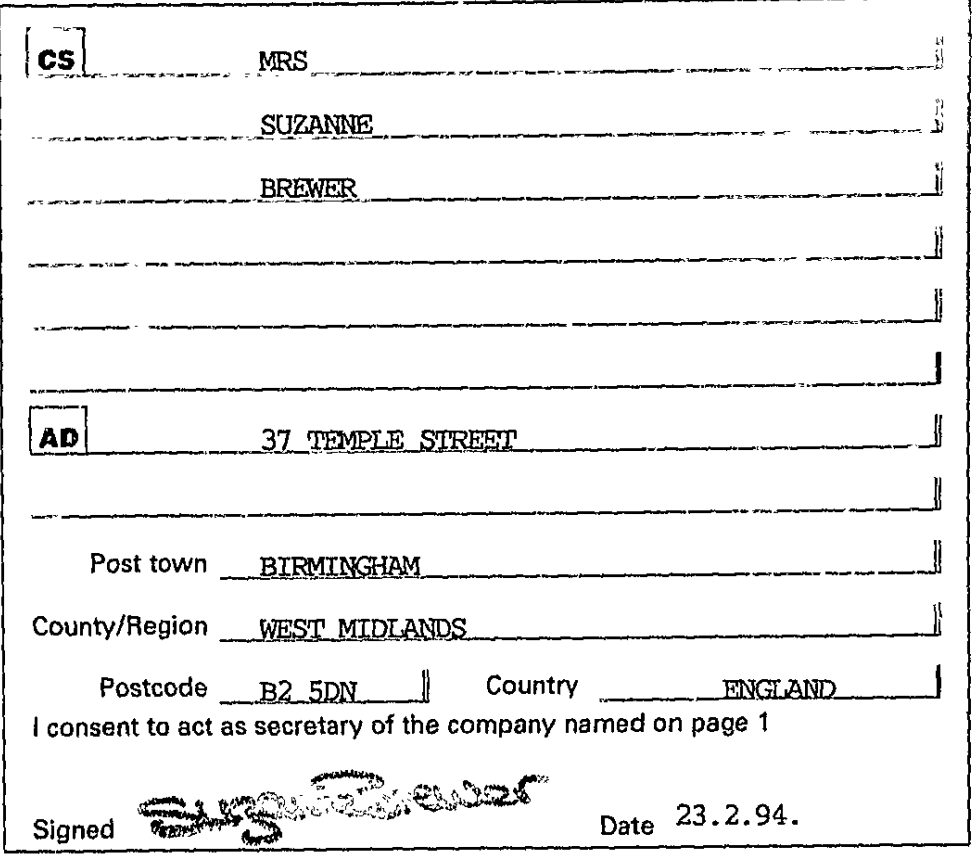 CS MRS
SUZANNE
BREWER
AD 37 TEMPLE STREET
Post town BIRMINGHAM
County/Region WEST MIDLANDS
Postcode B2 5DN Country ENGLAND
I consent to act as secretary of the company named on page 1
Signed Suzanne Brewer Date 23.2.94.